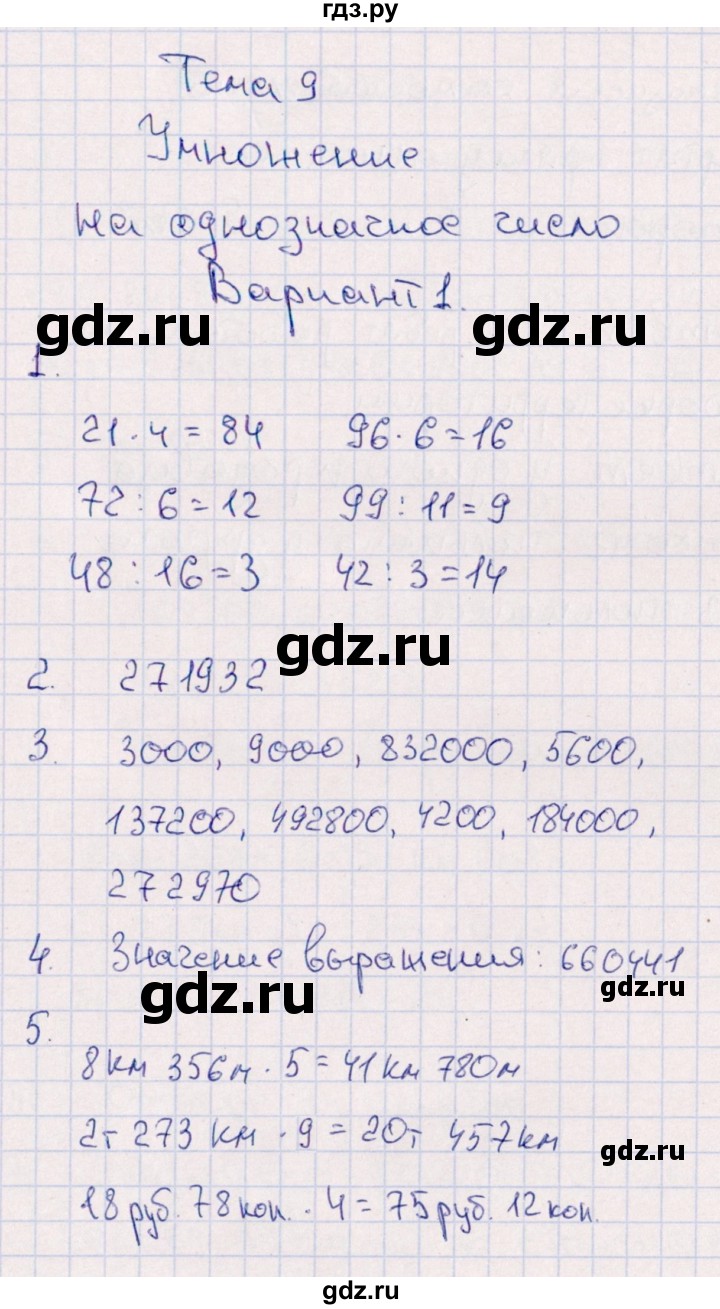 гдз.ру
Тема 9
Умножение
на однозначное число
Вариант 1.
gdz.ru
gdz.ru
1.
21 · 4 = 84 96 · 6 = 16
72 : 6 = 12 99 : 11 = 9
48 : 16 = 3 42 : 3 = 14
gdz.ru
2. 271932
3. 3000, 9000, 832000, 5600,
137200, 492800, 4200, 184000,
272970
4. Значение выражения: 660441
gdz.ru
gdz.ru
5.
8 км 356 м · 5 = 41 км 780 м
2т 273 км · 9 = 20т 457 км
gdz.ru
18 руб. 78 коп. · 4 = 75 руб. 12 коп.
gdz.ru